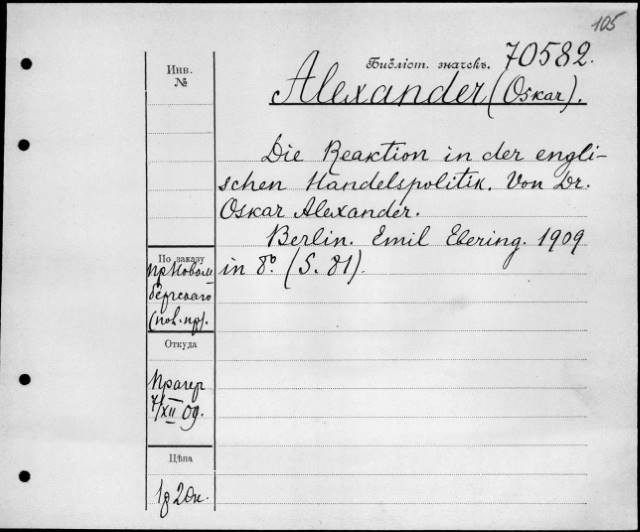 105
Библіот. значекъ. 70582.
Инв.
№
Alexander (Oskar).
Die Reaktion in der engli-
schen Handelspolitik. Von Dr.
Oskar Alexander.
Berlin. Emil Ebering. 1909
in 8º. (S. 81).
По заказу
пр Новом
бергскаго
(нов. пр).
Откуда
Прагер
7/XII 09.
Цѣна